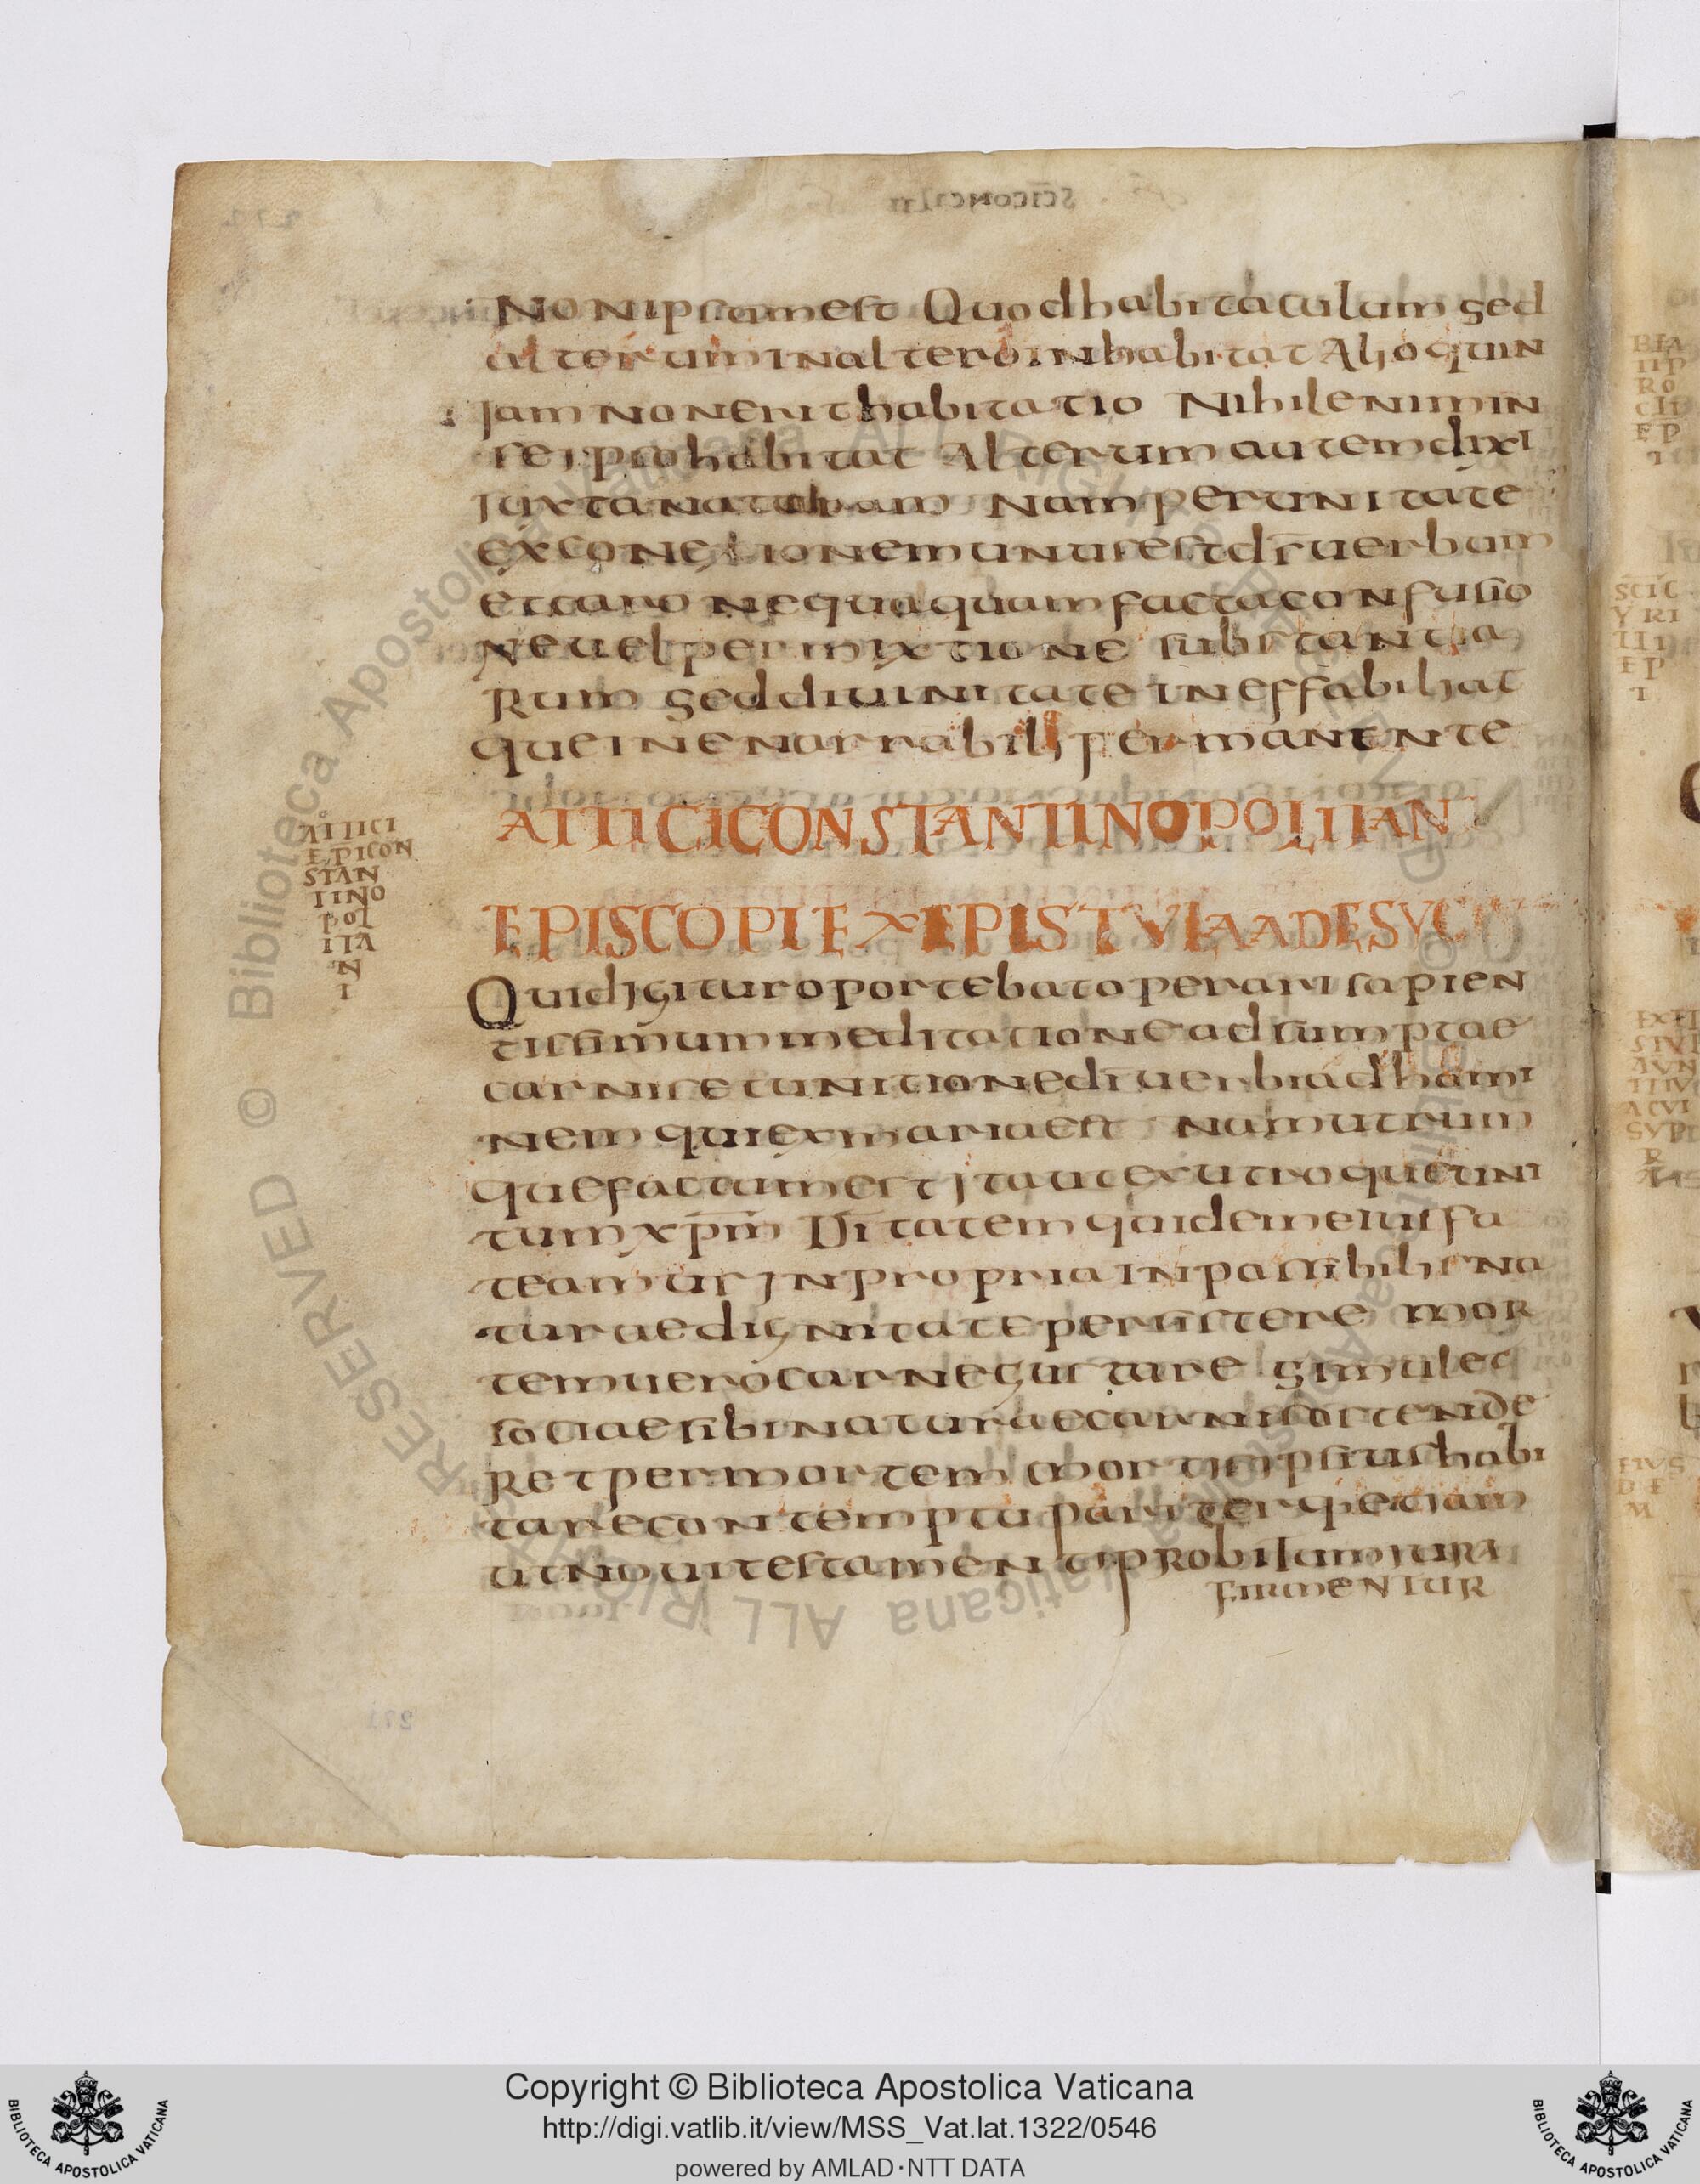 Nonipsum est Quod habitaculum sed
alterum in altero inhabitat Alioquin
iam non erit habitatio Nihil enim in
seipso habitat Alterum autem dixi
iuxta naturam Nam per unitate
ex conexionem unus est d̄s uerbum
et caro nequaquam facta confusio
ne uel permixtione substantia
rum sed diuinitate ineffabili at
que inenarrabili permanente
ATTICI CONSTANTINOPOLITAN
EPISCOPI EX EPISTVLA AD ESVC
ATTICI
EPI CON
STAN
TINO
POL
ITA
N
I
Quid igitur oportebat operari sapien
tissimum meditatione adsumptae
carnis et unitione d̄i uerbi ad homi
nem qui ex maria est Nam utrum
que factum est ita ut ex utroque uni
tum xp̄m D̄itatem quidem eius fa
teamur in propria inpassibilis na
turae dignitate persistere mor
tem uero carne gustare simul et
sociae sibi naturae carnis ostende
re t per mortem mortis ipsius habi
tare contemptu pariterq· etiam
ut noui testamenti probilum iura
firmentur
Copyright © Biblioteca Apostolica Vaticana
http://digi.vatlib.it/view/MSS_Vat.lat.1322/0546
powered by AMLAD·NTT DATA
BIBLIOTECA APOSTOLICA VATICANA
BIBLIOTECA APOSTOLICA VATICANA